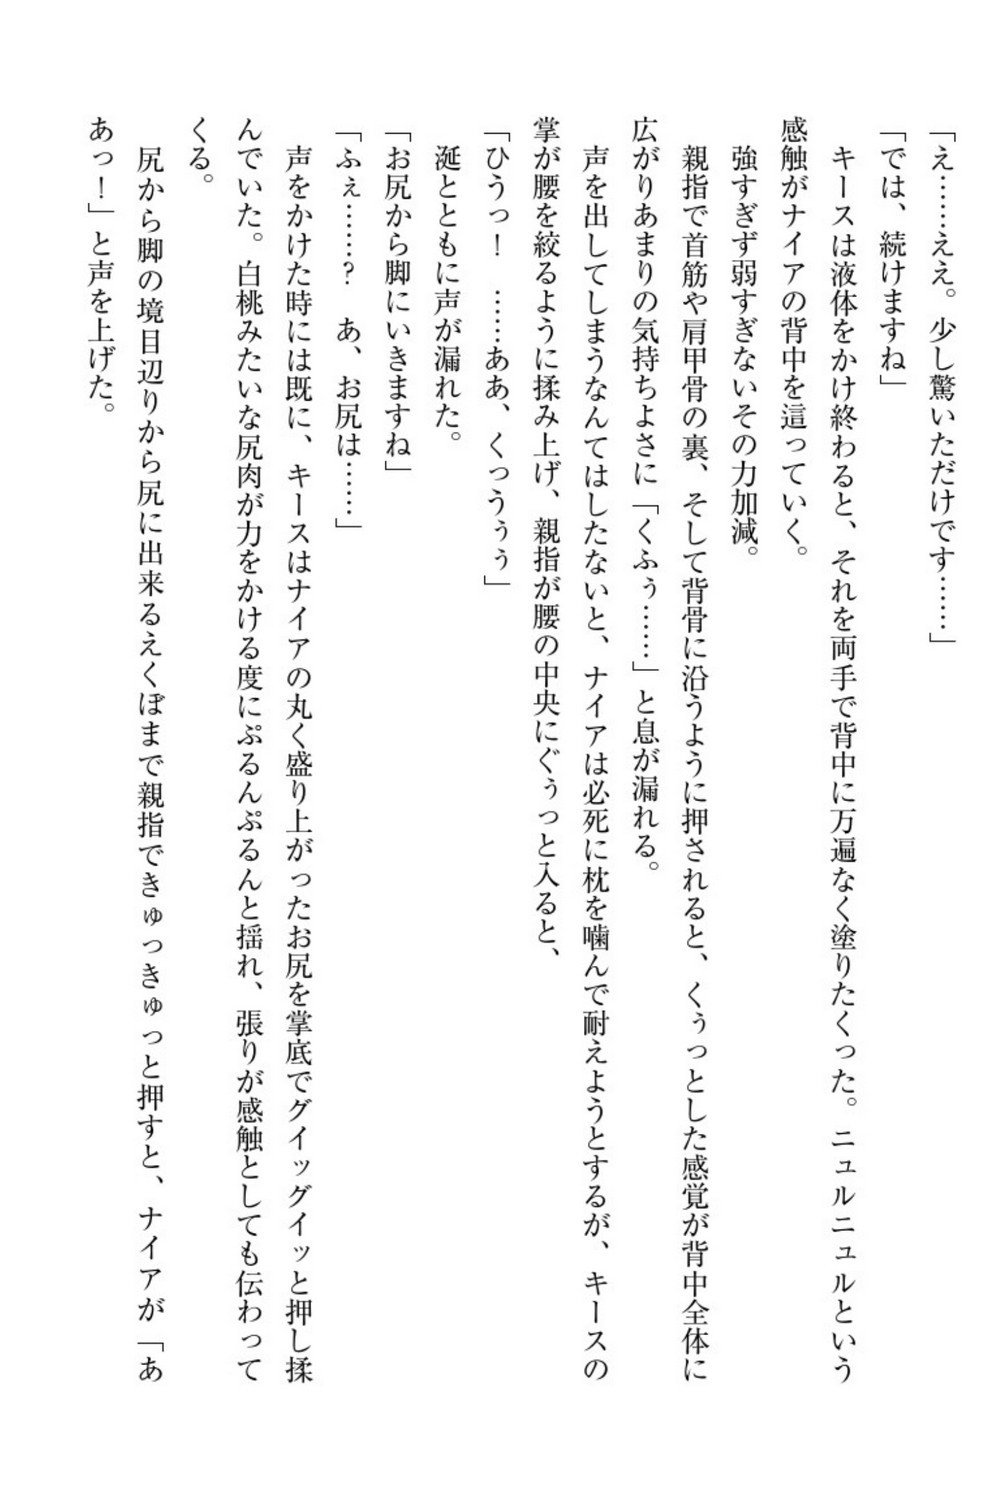 「え……ええ。少し驚いただけです……」
「では、続けますね」
　キースは液体をかけ終わると、それを両手で背中に万遍なく塗りたくった。ニュルニュルという
感触がナイアの背中を這っていく。
　強すぎず弱すぎないその力加減。
　親指で首筋や肩甲骨の裏、そして背骨に沿うように押されると、くぅっとした感覚が背中全体に
広がりあまりの気持ちよさに「くふぅ……」と息が漏れる。
　声を出してしまうなんてはしたないと、ナイアは必死に枕を噛んで耐えようとするが、キースの
掌が腰を絞るように揉み上げ、親指が腰の中央にぐぅっと入ると、
「ひうっ！　……ああ、くっうぅぅ」
　涎とともに声が漏れた。
「お尻から脚にいきますね」
「ふぇ……？　あ、お尻は……」
　声をかけた時には既に、キースはナイアの丸く盛り上がったお尻を掌底でグイッグイッと押し揉
んでいた。白桃みたいな尻肉が力をかける度にぷるんぷるんと揺れ、張りが感触としても伝わって
くる。
　尻から脚の境目辺りから尻に出来るえくぼまで親指できゅっきゅっと押すと、ナイアが「あ
あっ！」と声を上げた。